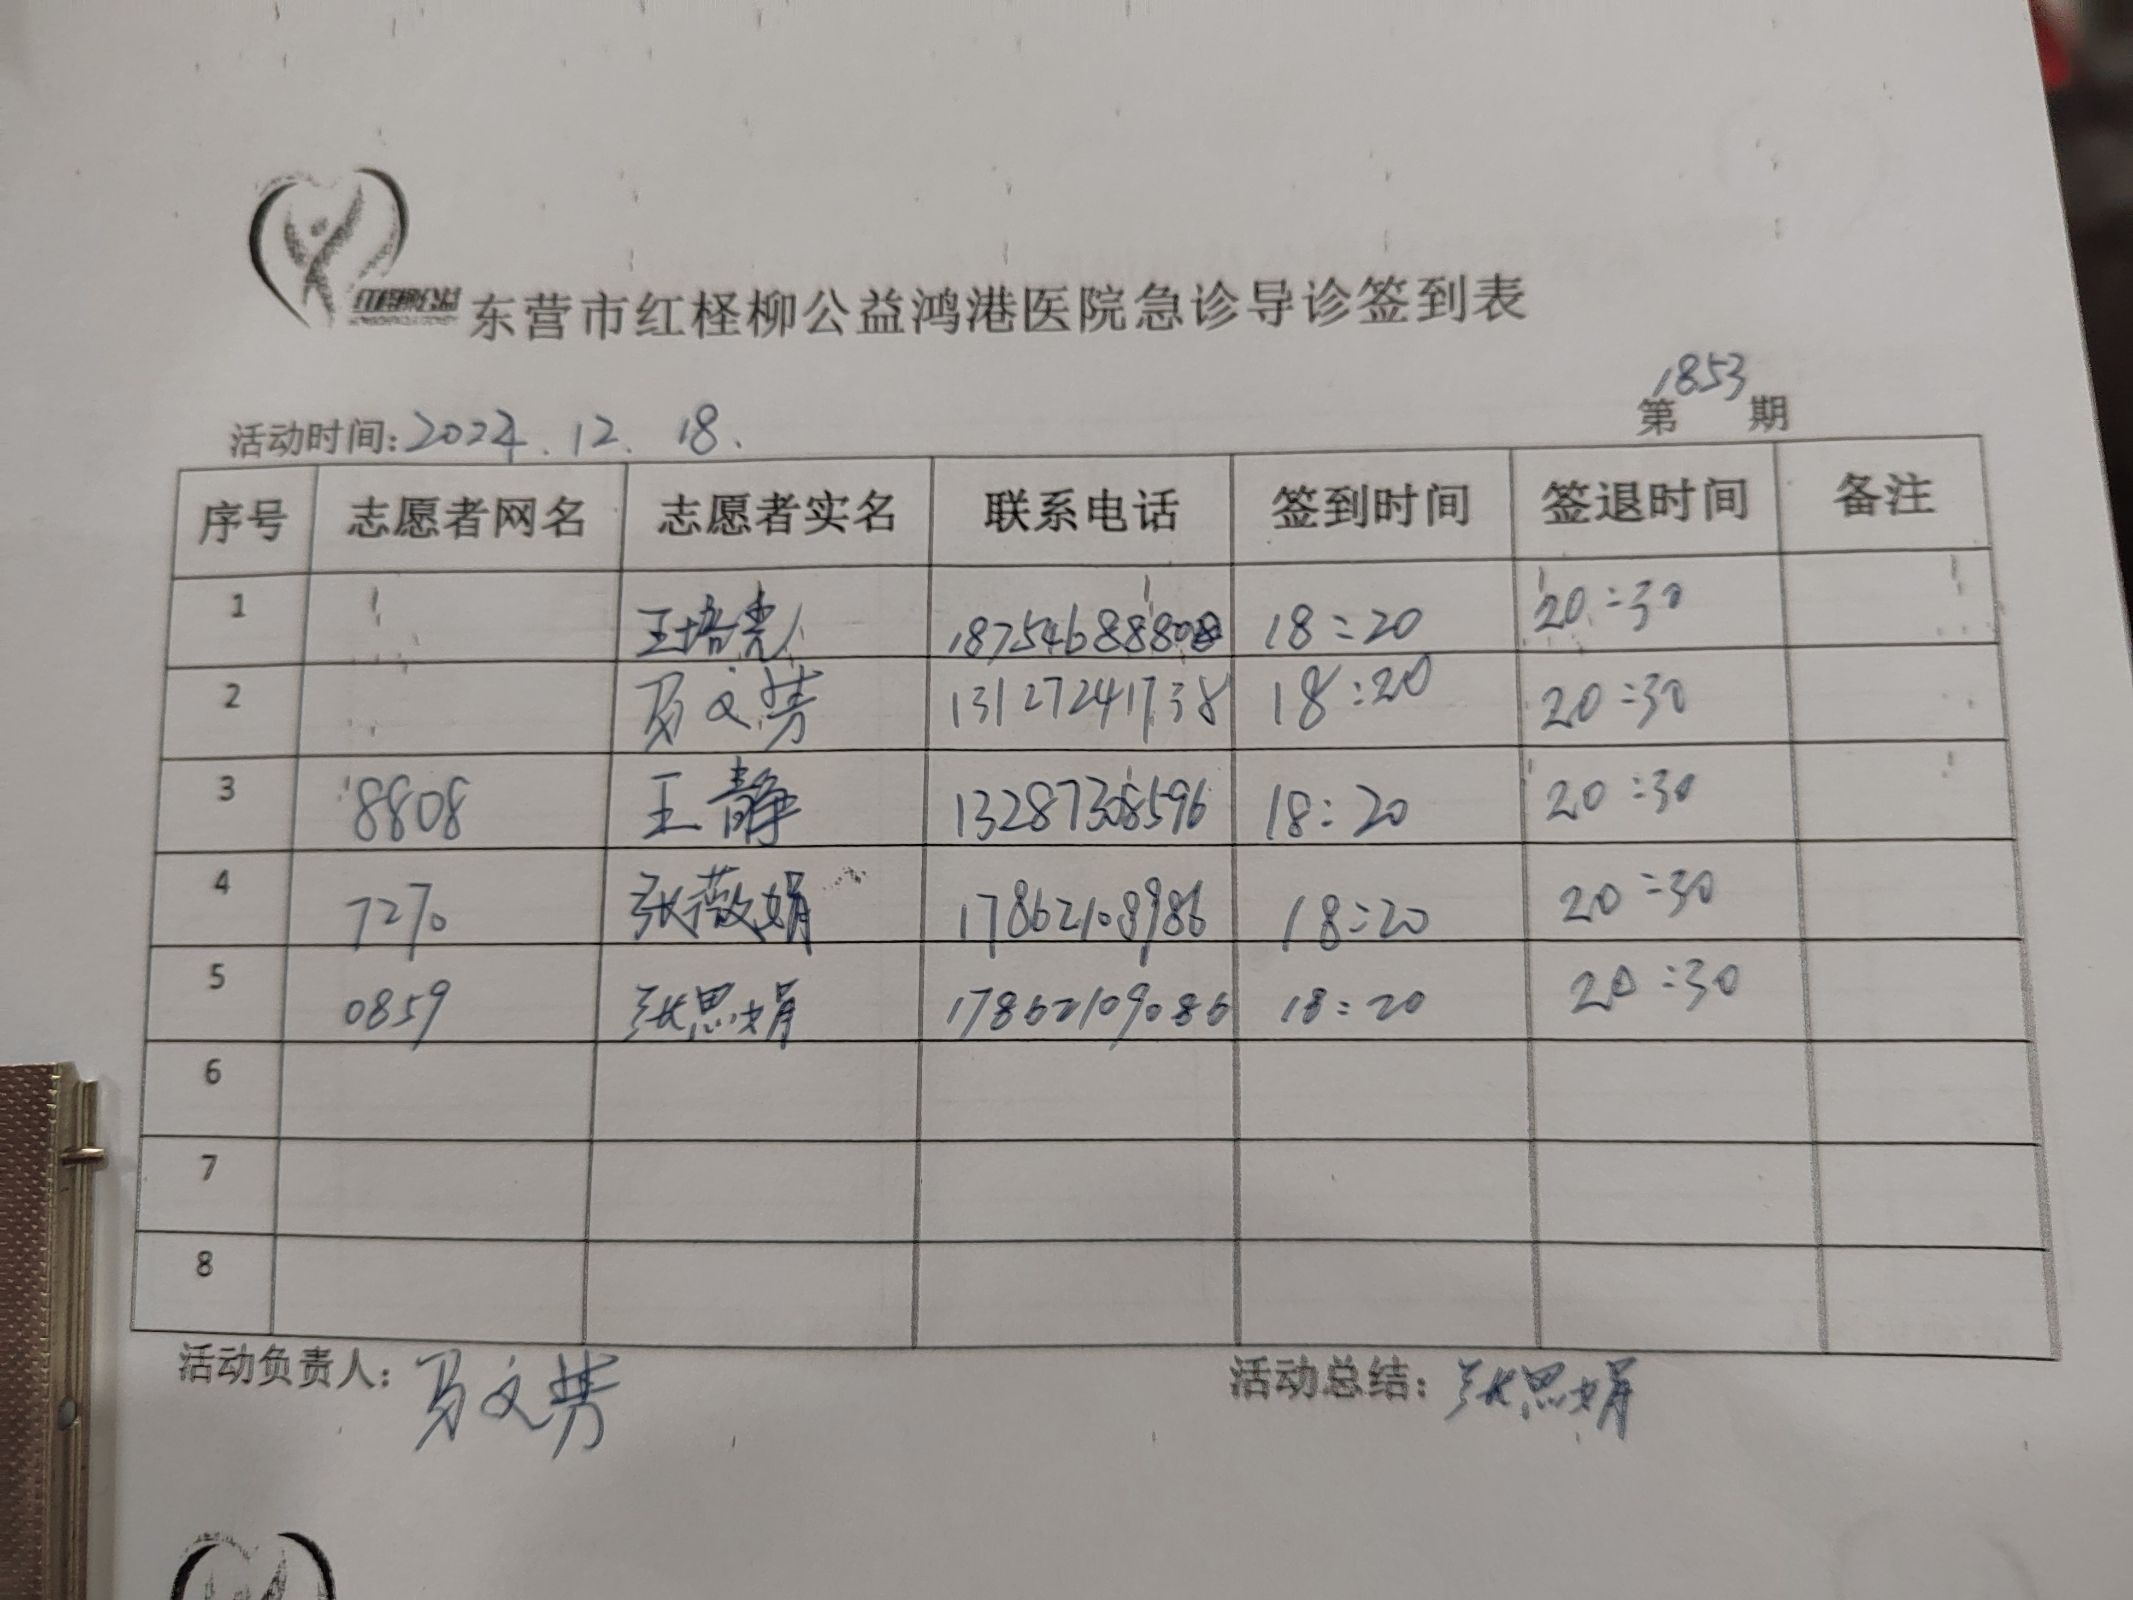 东营市红柽柳公益鸿港医院急诊导诊签到表
第1853期
活动时间:2024.12.18.
序号 志愿者网名 志愿者实名 联系电话 签到时间 签退时间 备注
1 王培亮 18754688808 18:20 20:30
2 马文芳 13127241738 18:20 20:30
3 8808 王静 13287308596 18:20 20:30
4 7270 张薇娟 17862108986 18:20 20:30
5 0859 张思娟 17862109086 18:20 20:30
6
7
8
活动负责人: 马文芳 活动总结: 张思娟